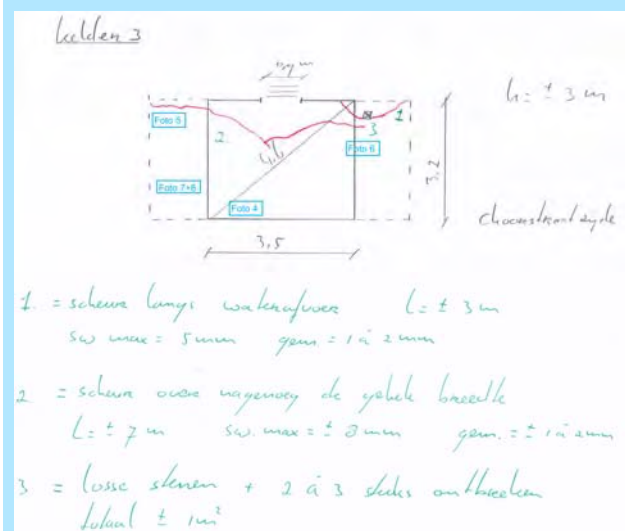 kelder 3
0,9 m
h = ± 3 m
Foto 5
2.
1
3
4,6
Foto 6
Foto 7+8
Foto 4
3,2
3,5
1. = scheur langs waterafvoer L = ± 3 m
sw max = 5 mm gem. = 1 à 2 mm
2 = scheur over nagenoeg de gehele breedte
L = ± 7 m sw. max = ± 8 mm gem. = ± 1 à 2 mm
3 = losse stenen + 2 à 3 stuks ontbreken
totaal ± 1m²